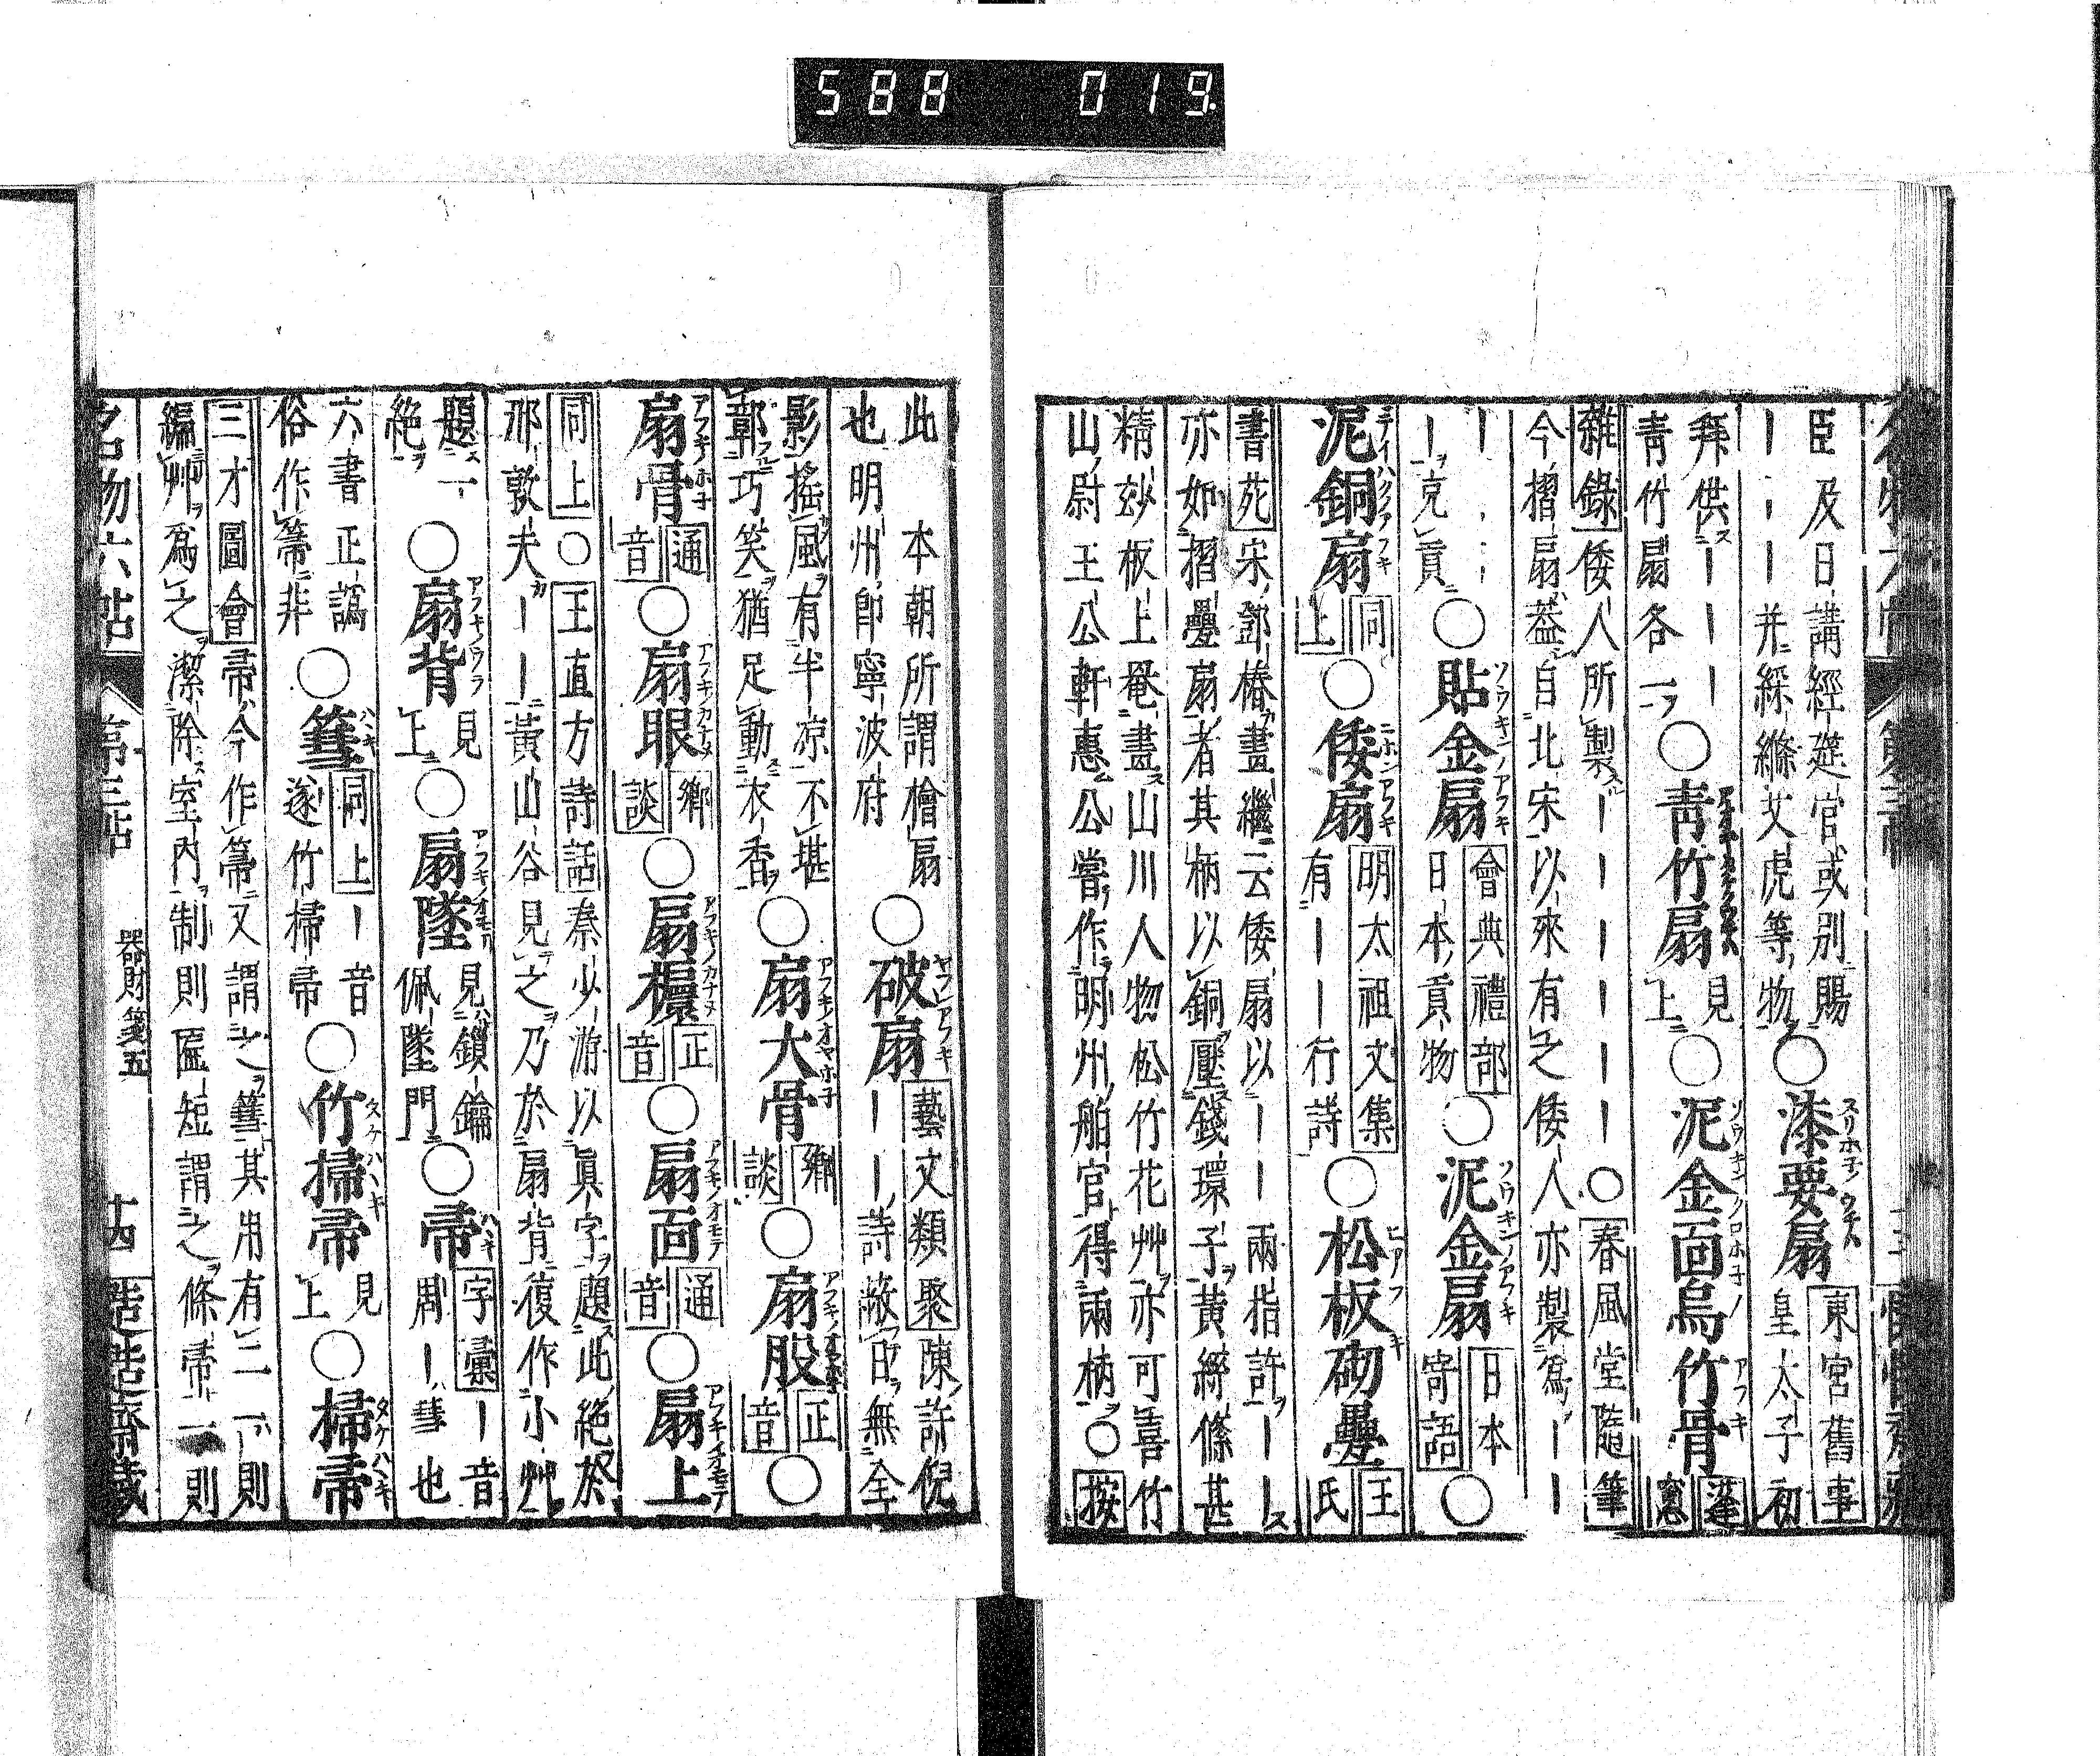 588 019.
臣及日講經筵官或別賜
｜｜｜并綵縧艾虎等物○漆要扇 東宮舊事 皇太子初
拜供｜｜｜
青竹扇各一○青竹扇 見上○泥金面烏竹骨 蓬窓
雜錄 倭人所製｜｜｜｜｜○春風堂隨筆
今摺扇葢自北宋以來有之倭人亦製爲｜｜
｜｜克貢○貼金扇 會典禮部 日本貢物○泥金扇 日本寄語○
泥銅扇 同上○倭扇 明太祖文集 有｜｜行詩○松板砌疊 王氏
書苑 宋鄧椿畫繼云倭扇以｜｜兩指許｜｜
亦如摺疊扇者其柄以銅壓錢環子黃絲絛甚
精玅板上罨畫山川人物松竹花艸亦可喜竹
山尉王公軒惠公嘗作明州舶官得兩柄○按
此 本朝所謂檜扇
也明州卽寧波府○破扇 藝文類聚 陳許倪｜｜詩蔽日無全
影搖風有半凉不堪
鄣巧笑猶足動衣香○扇大骨 鄉談○扇股 正音○
扇骨 通音○扇眼 鄉談○扇櫎 正音○扇面 通音○扇上
同上○王直方詩話 秦少游以眞字題此絕於
那敦夫｜｜黃山谷見之乃於扇背復作小艸
題一絕○扇背 見上○扇墜 見鎖鑰佩墜門○帚 字彙 ｜音周｜彗也
六書正譌
俗作箒非○篲 同上 ｜音遂竹掃帚○竹掃帚 見上○掃帚
三才圖會 帚今作箒又謂之篲其用有二一則
編艸爲之潔除室內制則匾短謂之條帚一則
名物六帖 第三帖 器財箋五 十四